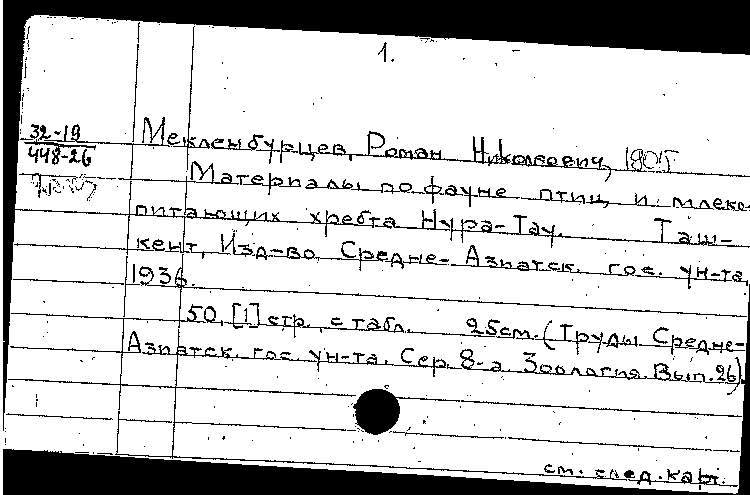 1.
32-19
448-26
Мекленбурцев, Роман Николаевич, 1905
Материалы по фауне птиц и млеко-
питающих хребта Нура-Тау. Таш-
кент, Изд-во Средне-Азиатск. гос. ун-та,
1936.
50, [1] стр. с табл. 25см. (Труды Средне-
Азиатск. гос. ун-та. Сер. 8-а. Зоология. Вып. 26).
см. след. карт.